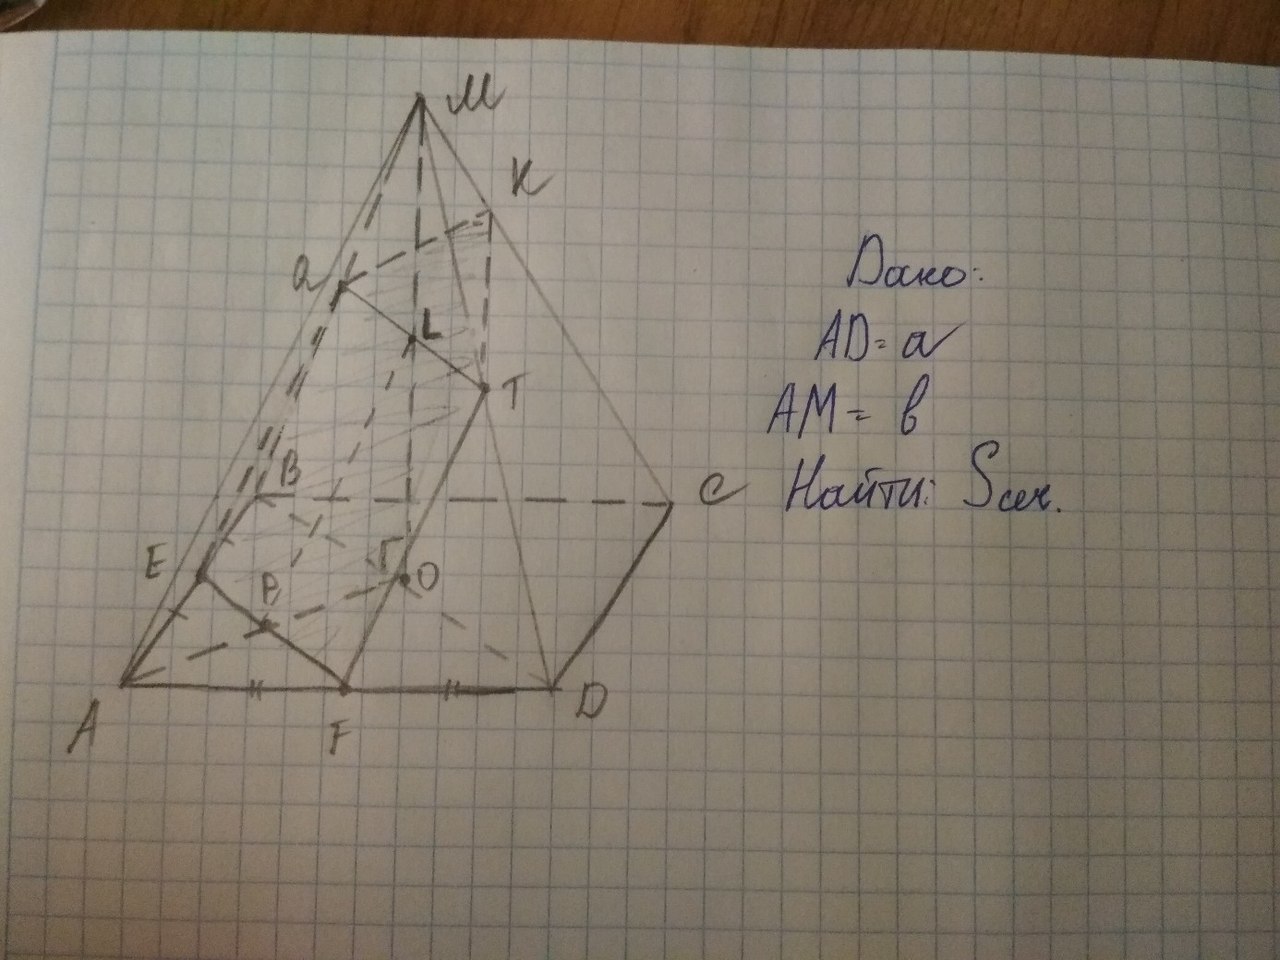 M
K
Q
L
T
B
C
E
P
O
A
F
D
Дано:
AD = a
AM = b
Найти: Sсеч.